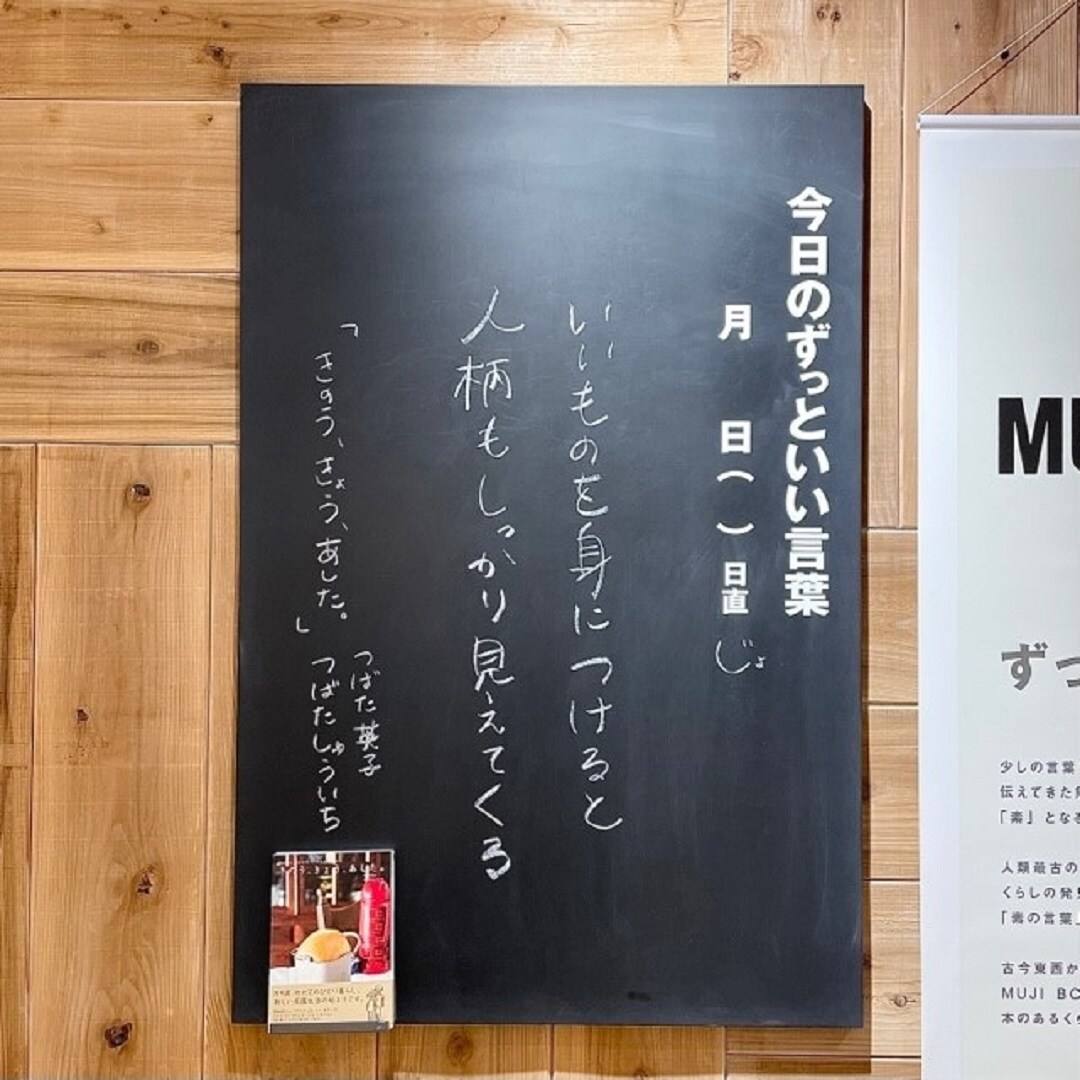 今日のずっといい言葉
月 日( ) 日直 じょ
いいものを身につけると
人柄もしっかり見えてくる
「きのう、きょう、あした。」
つばた英子
つばたしゅういち
MU
ずっ
少しの言葉
伝えてきた
「素」となる
人類最古の
くらしの発
「素の言葉」
古今東西か
MUJI BO
本のあるく